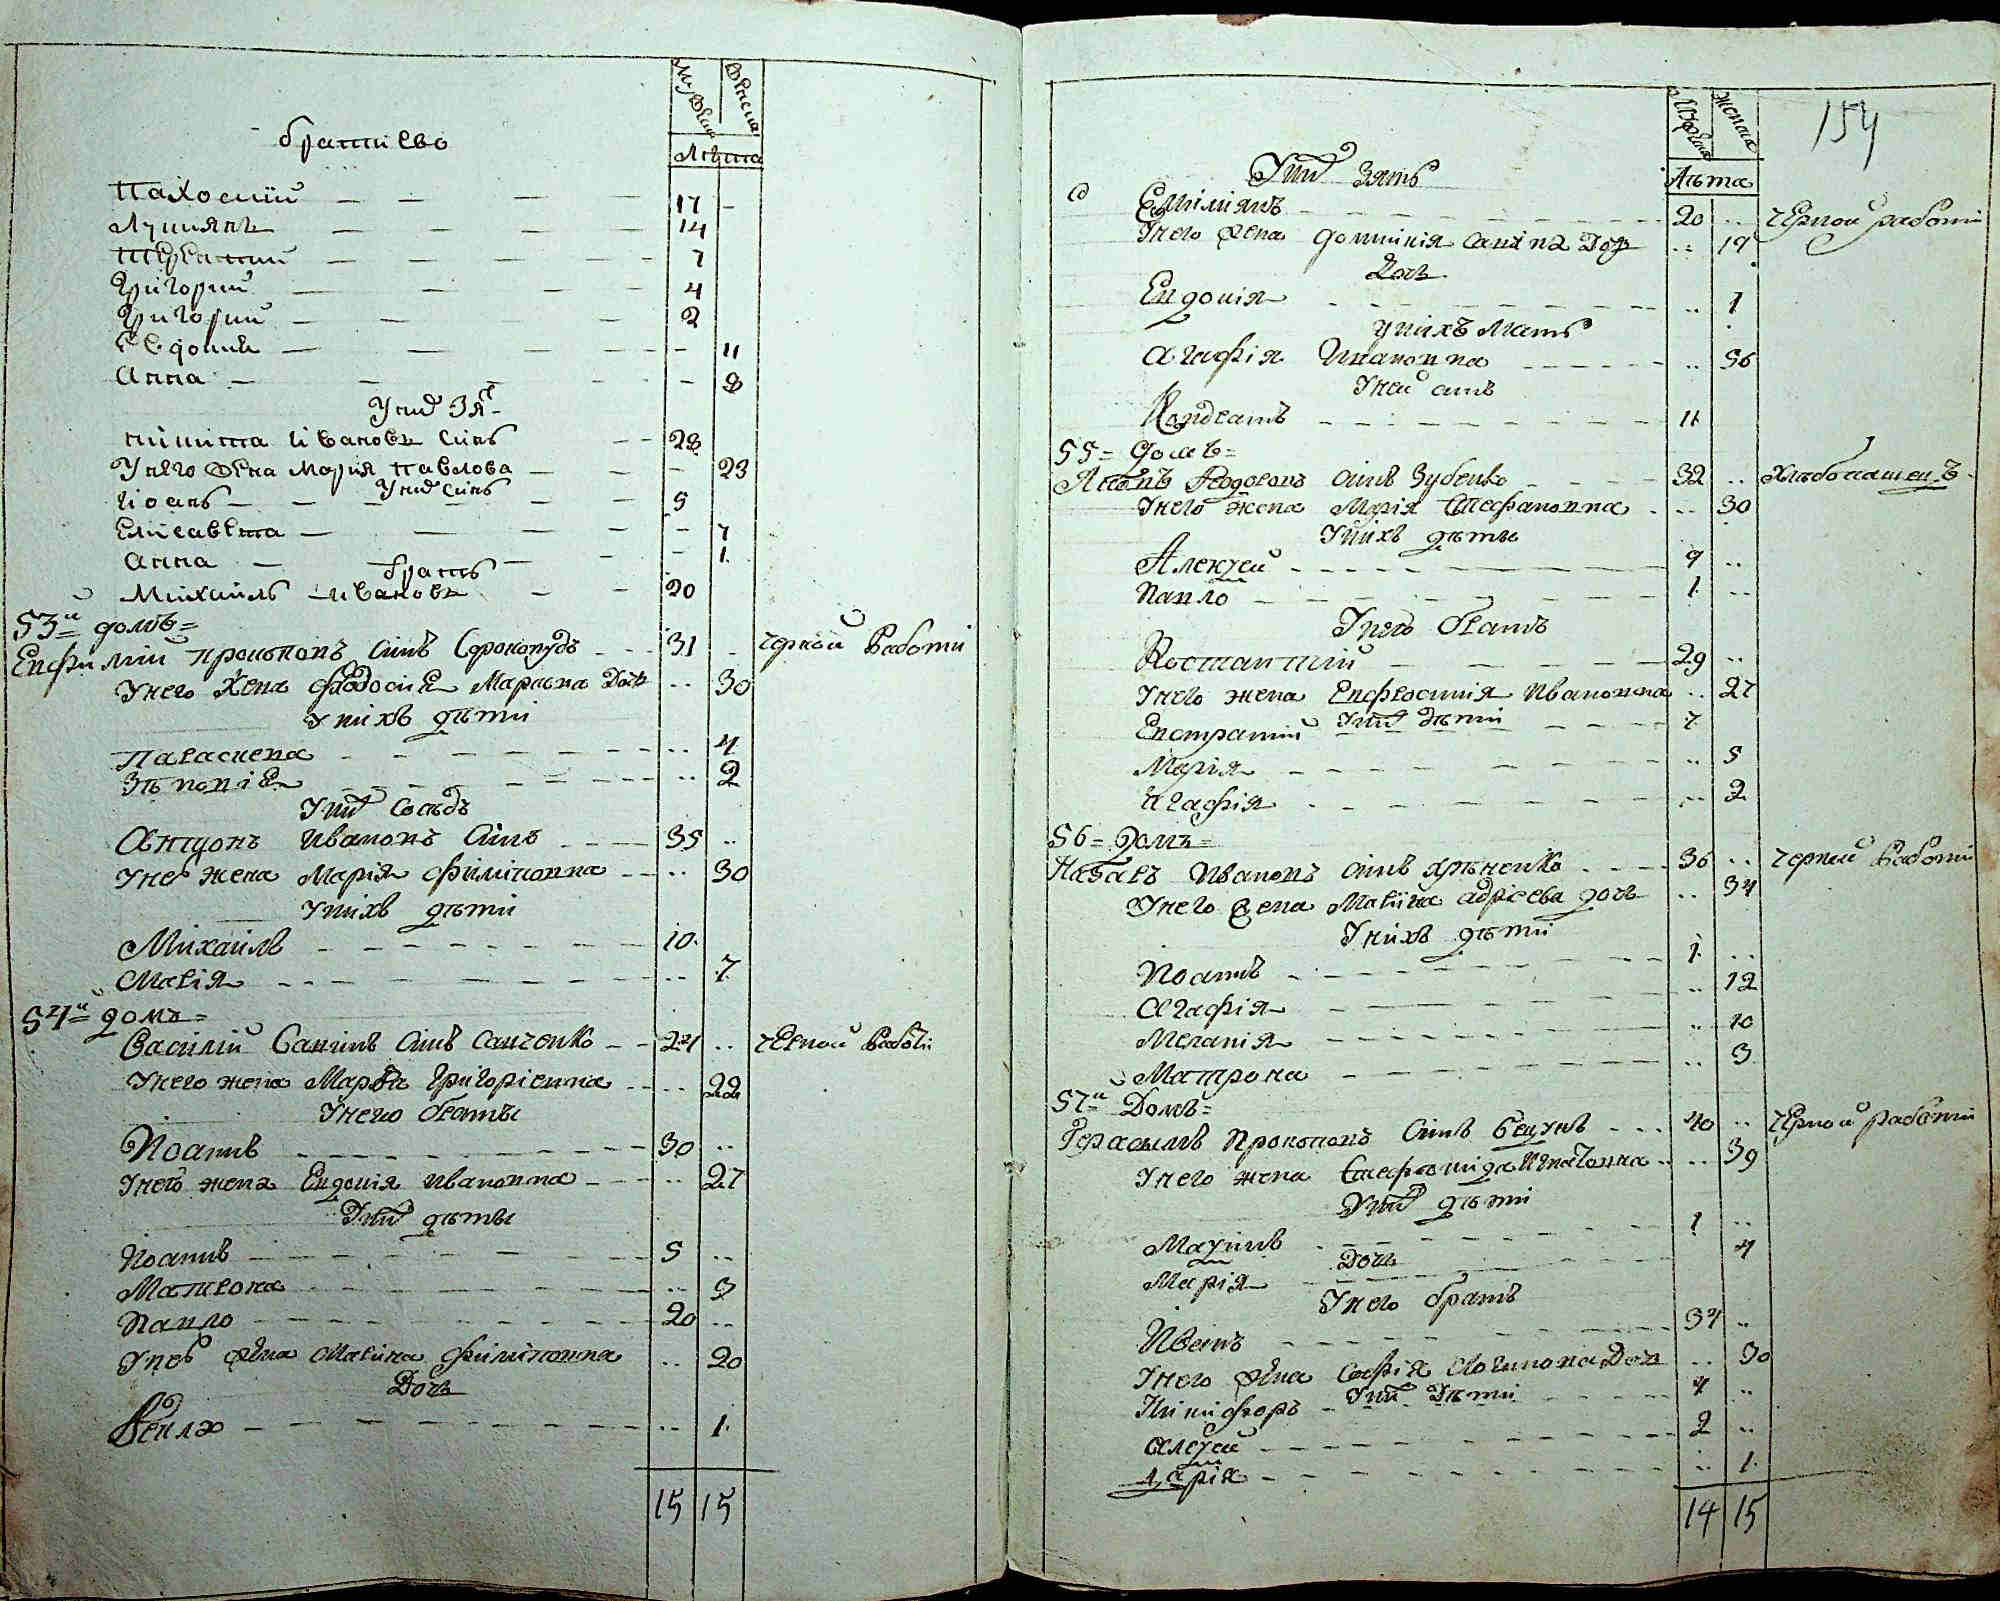 Мужеска Женска
Лѣта
братиево
Пахомий — — — — 17 –
Лукиянъ — — — — 14
Терентий — — — — 7
Григорий — — — — 4
Григорий — — — — 2
— — — — – 11
Анна — — — — – 8
У них Зят
Никита Ивановъ синъ — — 28
У него жена Мария Павлова — — – 23
У них синъ
Иоанъ — — — — 5
Елисавета — — — — – 7
Анна — — — – 1
братъ
Михаилъ Ивановъ — — 20
53й домъ=
Евфимий Прокоповъ Синъ Сорокопудъ - - - 31 - чернои Работи
У него Жена Феодосиѧ Маркова Дочь .. 30
У нихъ дѣти
Параскева - - - - .. 4
Зѣновиѧ - - - - .. 2
У них Сосѣдъ
Антюонъ Ивановъ Синъ - - - 35 ..
У него жена Марія Филиповна - - .. 30
У нихъ дѣти
Михаилъ - - - - 10.
Марія - - - - .. 7.
54й домъ=
Василий Савинъ Синъ Савченко - - 24 .. чернои Работи
У него жена Марфа Григоріевна - - .. 22
У него браты
Иоаннъ - - - - 30 ..
У него жена Евдокія Ивановна - - .. 27
У них дѣты
Иоаннъ - - - - 5 ..
Матрона - - - - .. 3
Павло - - - - 20 ..
У него жена Марина Филиповна .. 20
Дочь
- - - - .. 1.
15 15
Мужеска Женска
154
Лѣта
У них зять
Емилиянъ - - - - 20 .. чернои работи
У него жена Домникия Савина Дочь .. 19
Дочь
Евдокія - - - - .. 1
У нихъ Мать
Агафія Ивановна - - - .. 56
У неи синъ
Кондратъ - - - - 11
55= Домъ=
Антонъ Феодоровъ синъ Зубенко - - - 32 .. Хлѣбопашецъ
У него жена Марія Стефановна - .. 30
У нихъ дѣты
Алексей - - - - 9 ..
Павло - - - - 1. ..
У него братъ
Костантий - - - - 29 ..
У него жена Евфросиния Ивановна .. 27
У них дѣти
Евстратий - - - 7.
Марія - - - - .. 5
Агафія - - - - .. 2
56= Домъ=
Назаръ Ивановъ синъ - - - 36 .. чернои Работи
У него жена Марина Адріева дочь .. 34
У нихъ дѣти
Иоаннъ - - - - 1. ..
Агафія - - - - .. 12
Меланія - - - - .. 10
Матрона - - - - .. 3
57й Домъ=
Герасымъ Прокоповъ Синъ Бецунъ - - - 40 .. чернои работи
У него жена Игнатовна .. .. 39
У них дѣти
Маѯимъ - - - - 1 ..
Дочь
Марія - - - - 4
У него братъ
Иванъ - - - - 34 ..
У него жена Софія Логинова Дочь .. 30
У них Дѣти
Никифоръ - - - - 4 ..
Алеѯей - - - - 2 ..
Дарія - - - - .. 1.
14 15